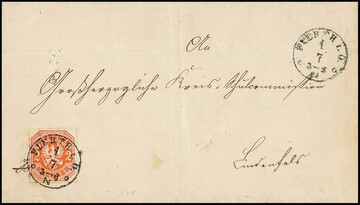 An
FUERTH I. O.
1
7
Großherzogliche Kreis-Schulcommission
Lindenfels
FUERTH I. O.
1
7
N